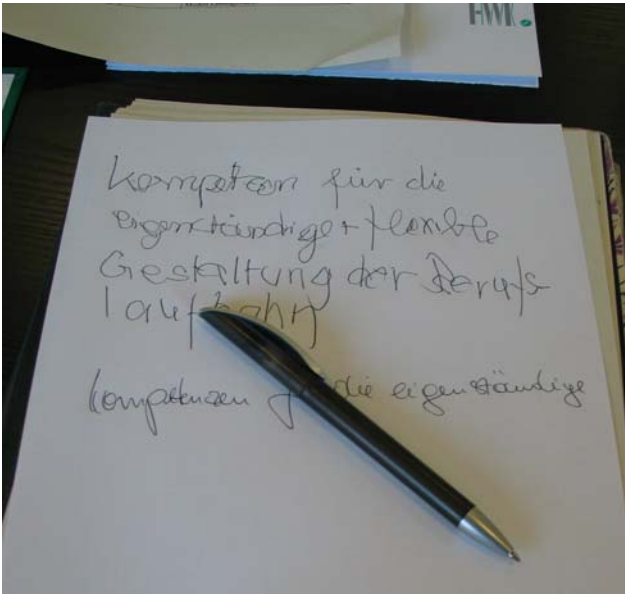 HWK
Kompetzen für die
eigenständige + flexible
Gestaltung der Berufs-
laufbahn
Kompetenzen für die eigenständige